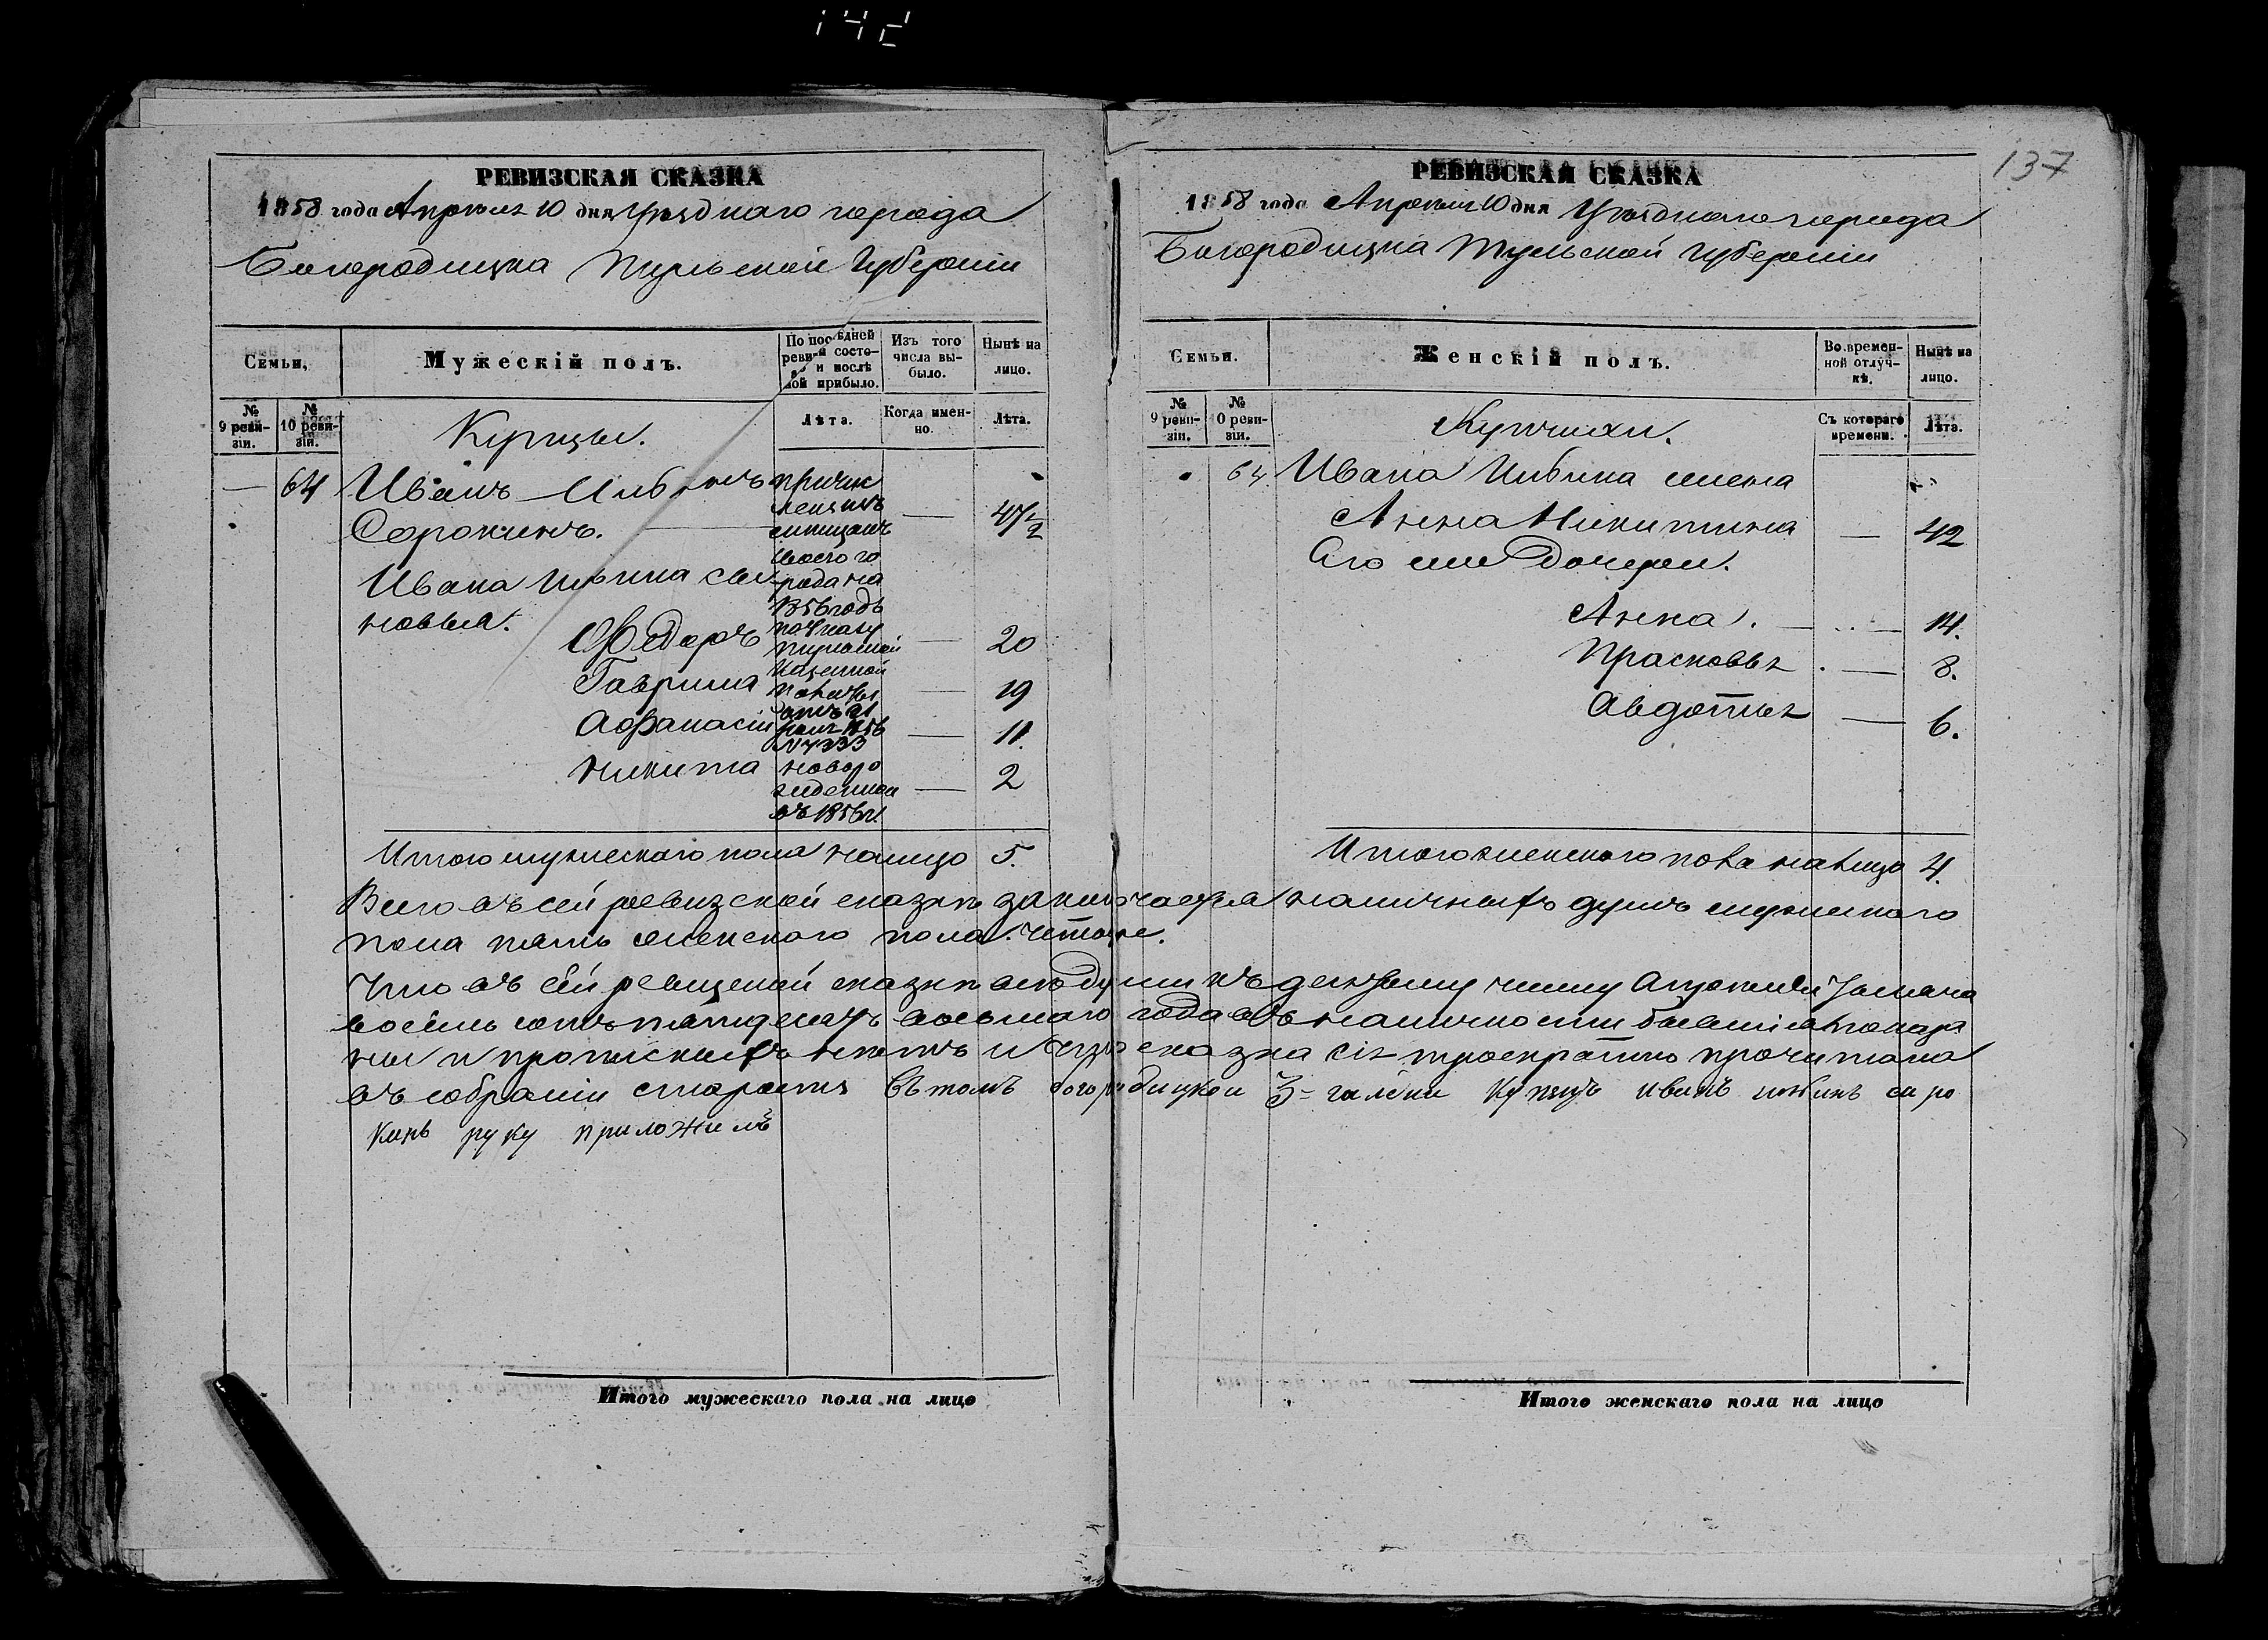 142
137
РЕВИЗСКАЯ СКАЗКА
1858 года Апреля 10 дня Уѣзднаго города
Богородицка Тульской Губерніи
Семьи,
Мужескій полъ.
По послѣдней ревизіи состояло и послѣ той прибыло.
Изъ того числа выбыло.
Нынѣ на лицо.
№ 9 ревизіи.
№ 10 ревизіи.
Купцы.
Лѣта.
Когда именно.
Лѣта.
— 64 Иванъ Ильинъ
Сорокинъ. — 47½
причис
ленъ изъ
мѣщанъ
сего го
рода на
1856 годъ
по Указу
Тульской
Казенной
Палаты
отъ 21
1856
№ 4333
Ивана Ильина сы
новья.
Ѳедоръ — 20
Гаврила — 19
Афанасій — 11.
Никита новоро
жденной
въ 1856 г. — 2
Итого мужескаго пола налицо 5.
РЕВИЗСКАЯ СКАЗКА
1858 года Апреля 10 дня Уѣзднаго города
Богородицка Тульской Губерніи
Семьи.
Женскій полъ.
Во временной отлучкѣ.
Нынѣ на лицо.
№ 9 ревизіи.
№ 10 ревизіи.
Купчихи.
Съ котораго времени.
Лѣта.
64 Ивана Ильина жена
Анна Никитина — 42
Его же Дочери.
Анна. — 14.
Прасковья. — 8.
Авдотья — 6.
Итого женскаго пола налицо 4.
Всего въ сей ревизской сказкѣ заключается наличныхъ душъ мужескаго
пола пять женского пола четыре.
Что въ сей ревизской сказкѣ всѣ души къ десятому числу Апреля Тысяча
восемь сотъ пятьдесятъ восьмаго года въ наличности бывшія показа
ны и прописныхъ нѣтъ и сказка сія троекратно прочитана
въ собраніи старосты Въ томъ богородицкой 3- гилдии купецъ иванъ ильинъ соро
кинъ руку приложилъ
Итого мужескаго пола на лицо
Итого женскаго пола на лицо